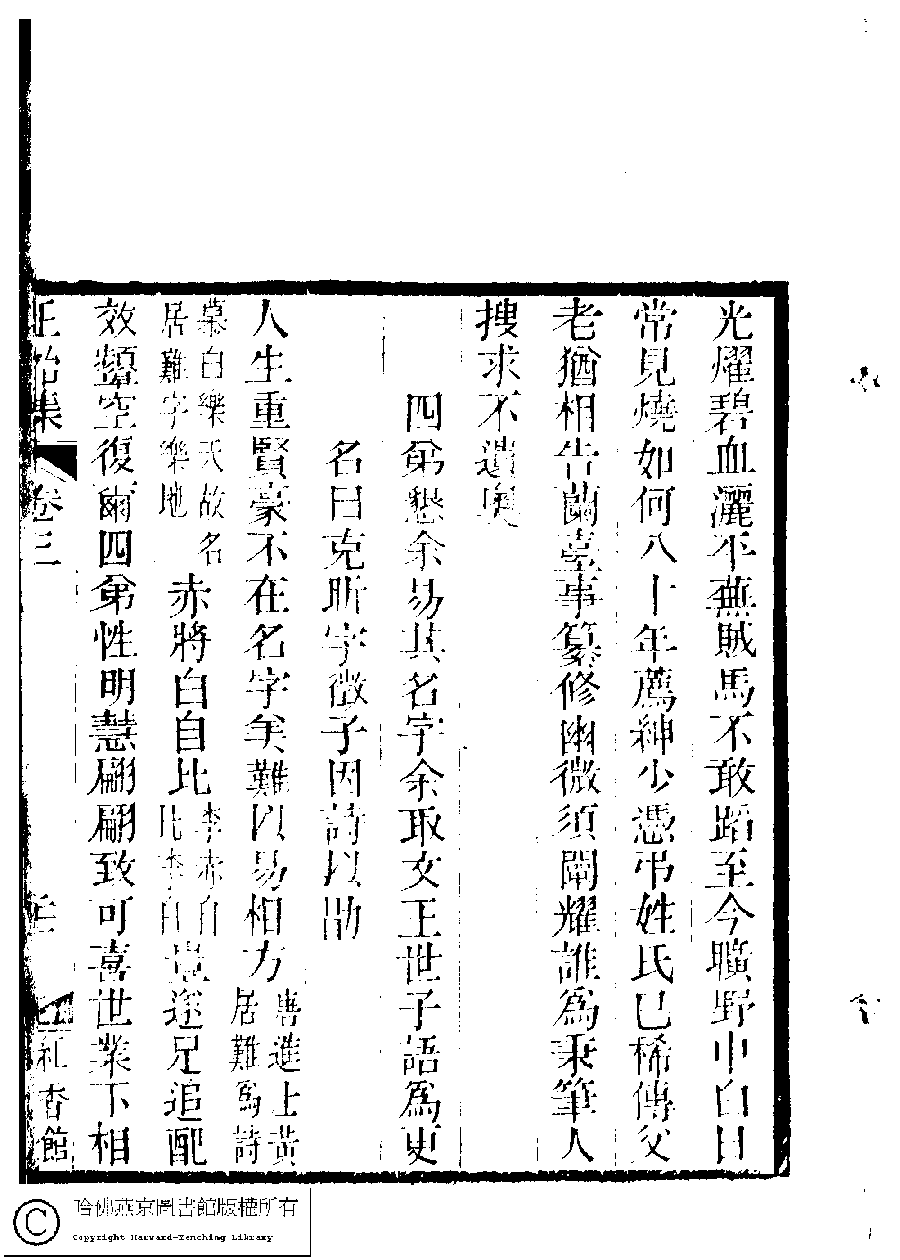 光燿碧血灑平蕪賊馬不敢蹈至今曠野中白日
常見燒如何八十年薦紳少憑弔姓氏已稀傳父
老猶相告蘭臺事纂修幽微須闡耀誰為秉筆人
搜求不遺奧
四弟懇余易其名字余取文王世子語為更
名曰克昕字徵子因詩以勖
人生重賢豪不在名字矣難以易相方唐進士黃
居難為詩
慕白樂天故名
居難字樂地
赤將白自比李赤自
比李白
豈遂足追配
效顰空復爾四弟性明慧翩翩致可喜世業下相
正始集
卷三
紅杏館
哈佛燕京圖書館版權所有
Copyright Harvard-Yenching Library